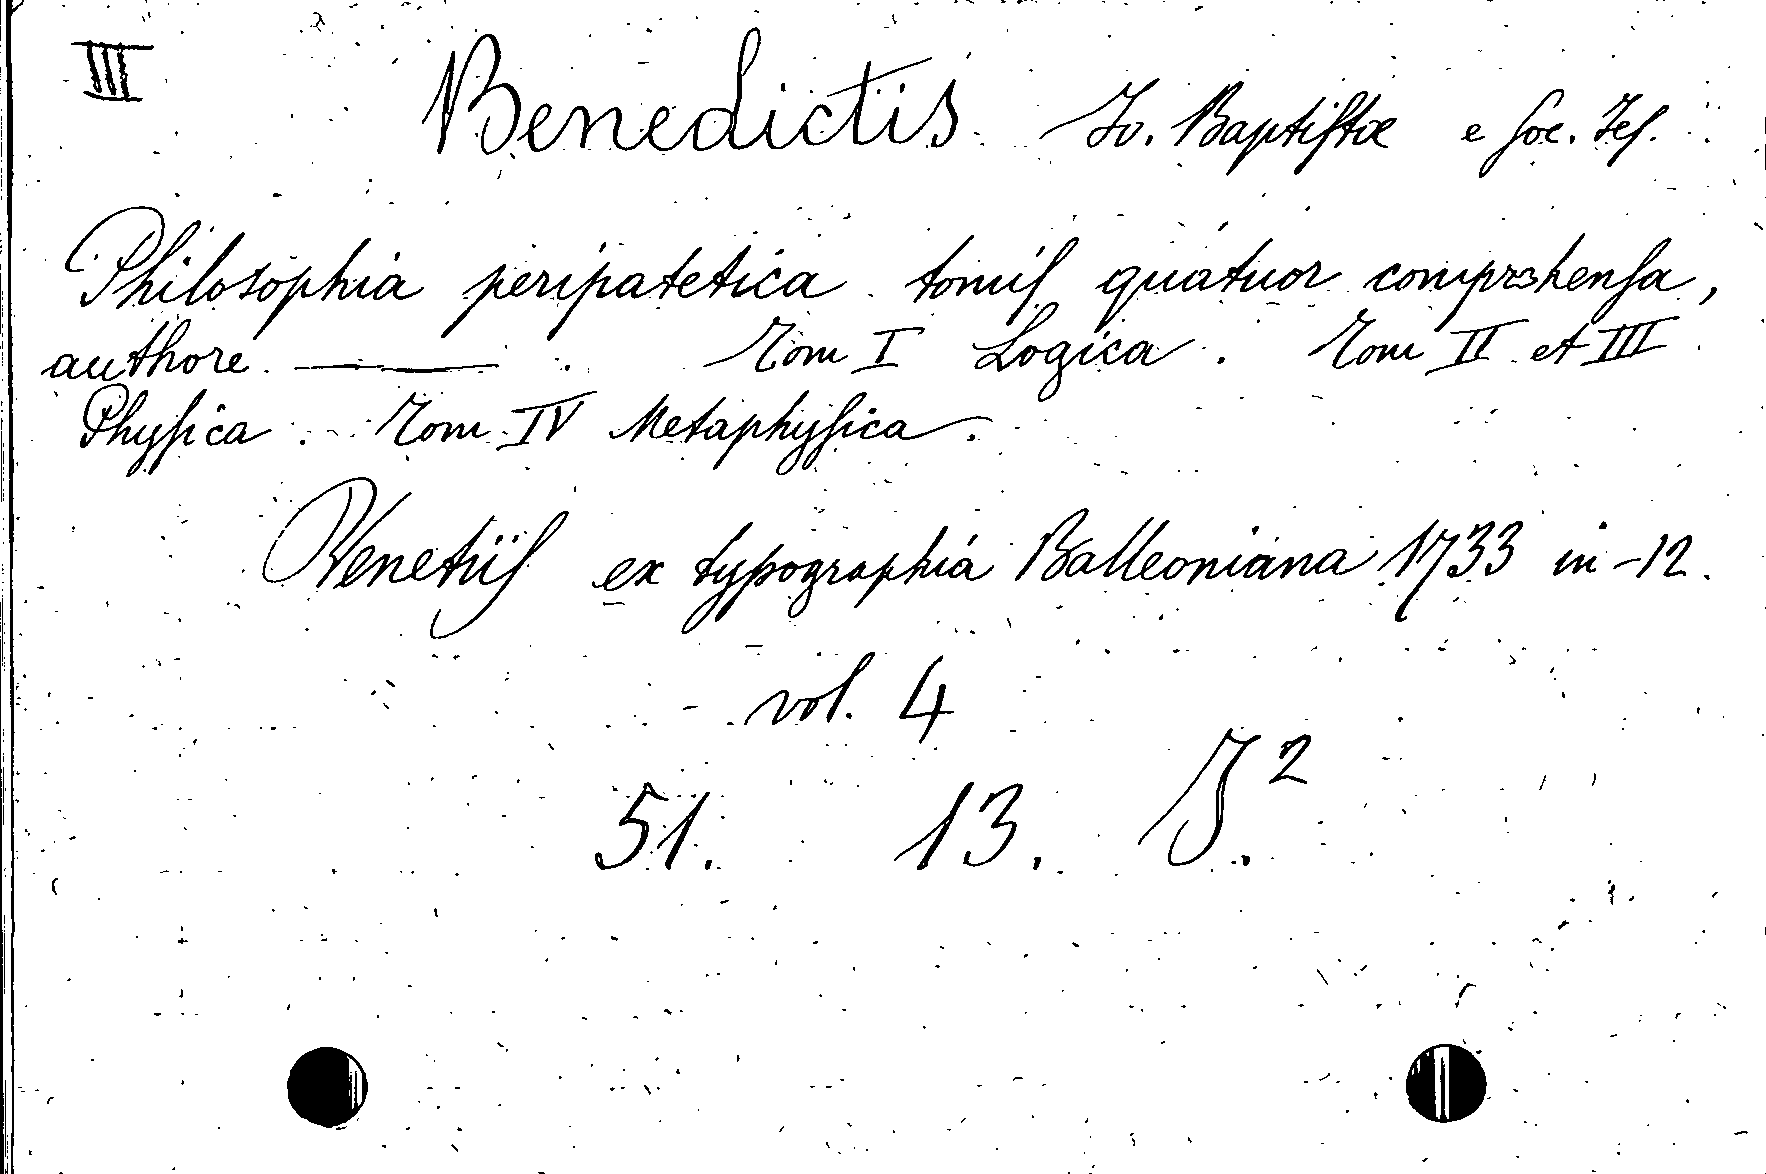 III Benedictis Jo. Baptiſtæ e ſoc. Jeſ.
Philosophia peripatetica tomiſ quatuor comprehenſa,
authore ——— . Tom I Logica . Tom II et III
Phyſica . Tom IV Metaphyſica .
Venetiiſ ex typographia Balleoniana 1733 in -12.
vol. 4
51. 13. J.²